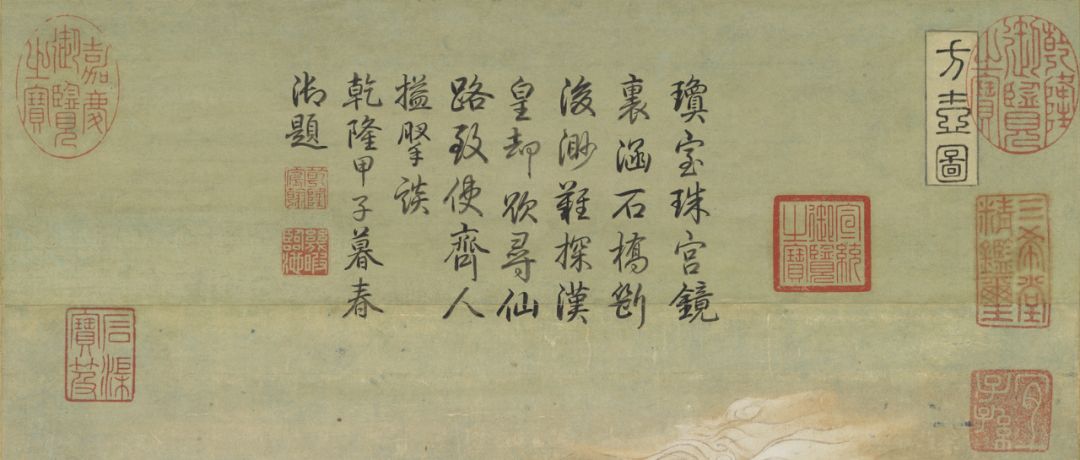 乾隆御覽之寶
方壺圖
三希堂精鑑璽
宜子孫
宣統御覽之寶
瓊室珠宮鏡
裏涵石橋斷
後渺難探漢
皇却欲尋仙
路致使齊人
搤掔談
乾隆甲子暮春
御題
乾隆宸翰
幾暇臨池
嘉慶御覽之寶
石渠寶笈